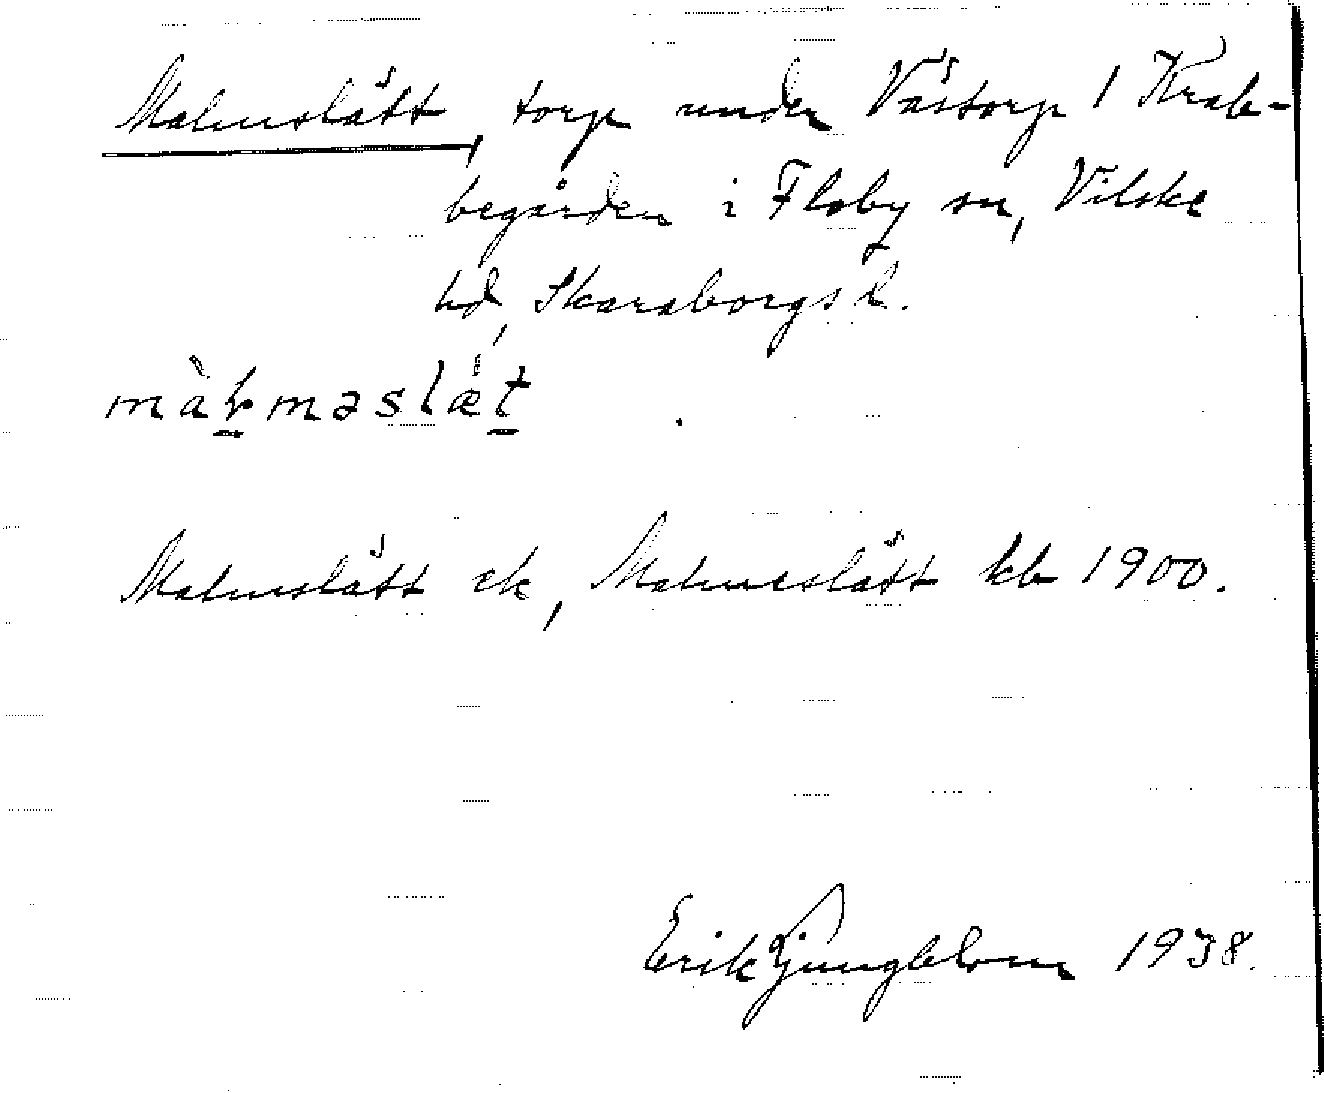 Malmslätt, torp under Västorp 1 Krab-
begården i Floby sn, Vilske
hd, Skaraborgs l.
màɫ̠məslæ̀t̠
Malmslätt ek, Malmeslätt kb 1900.
Erik Ljungblom 1938.